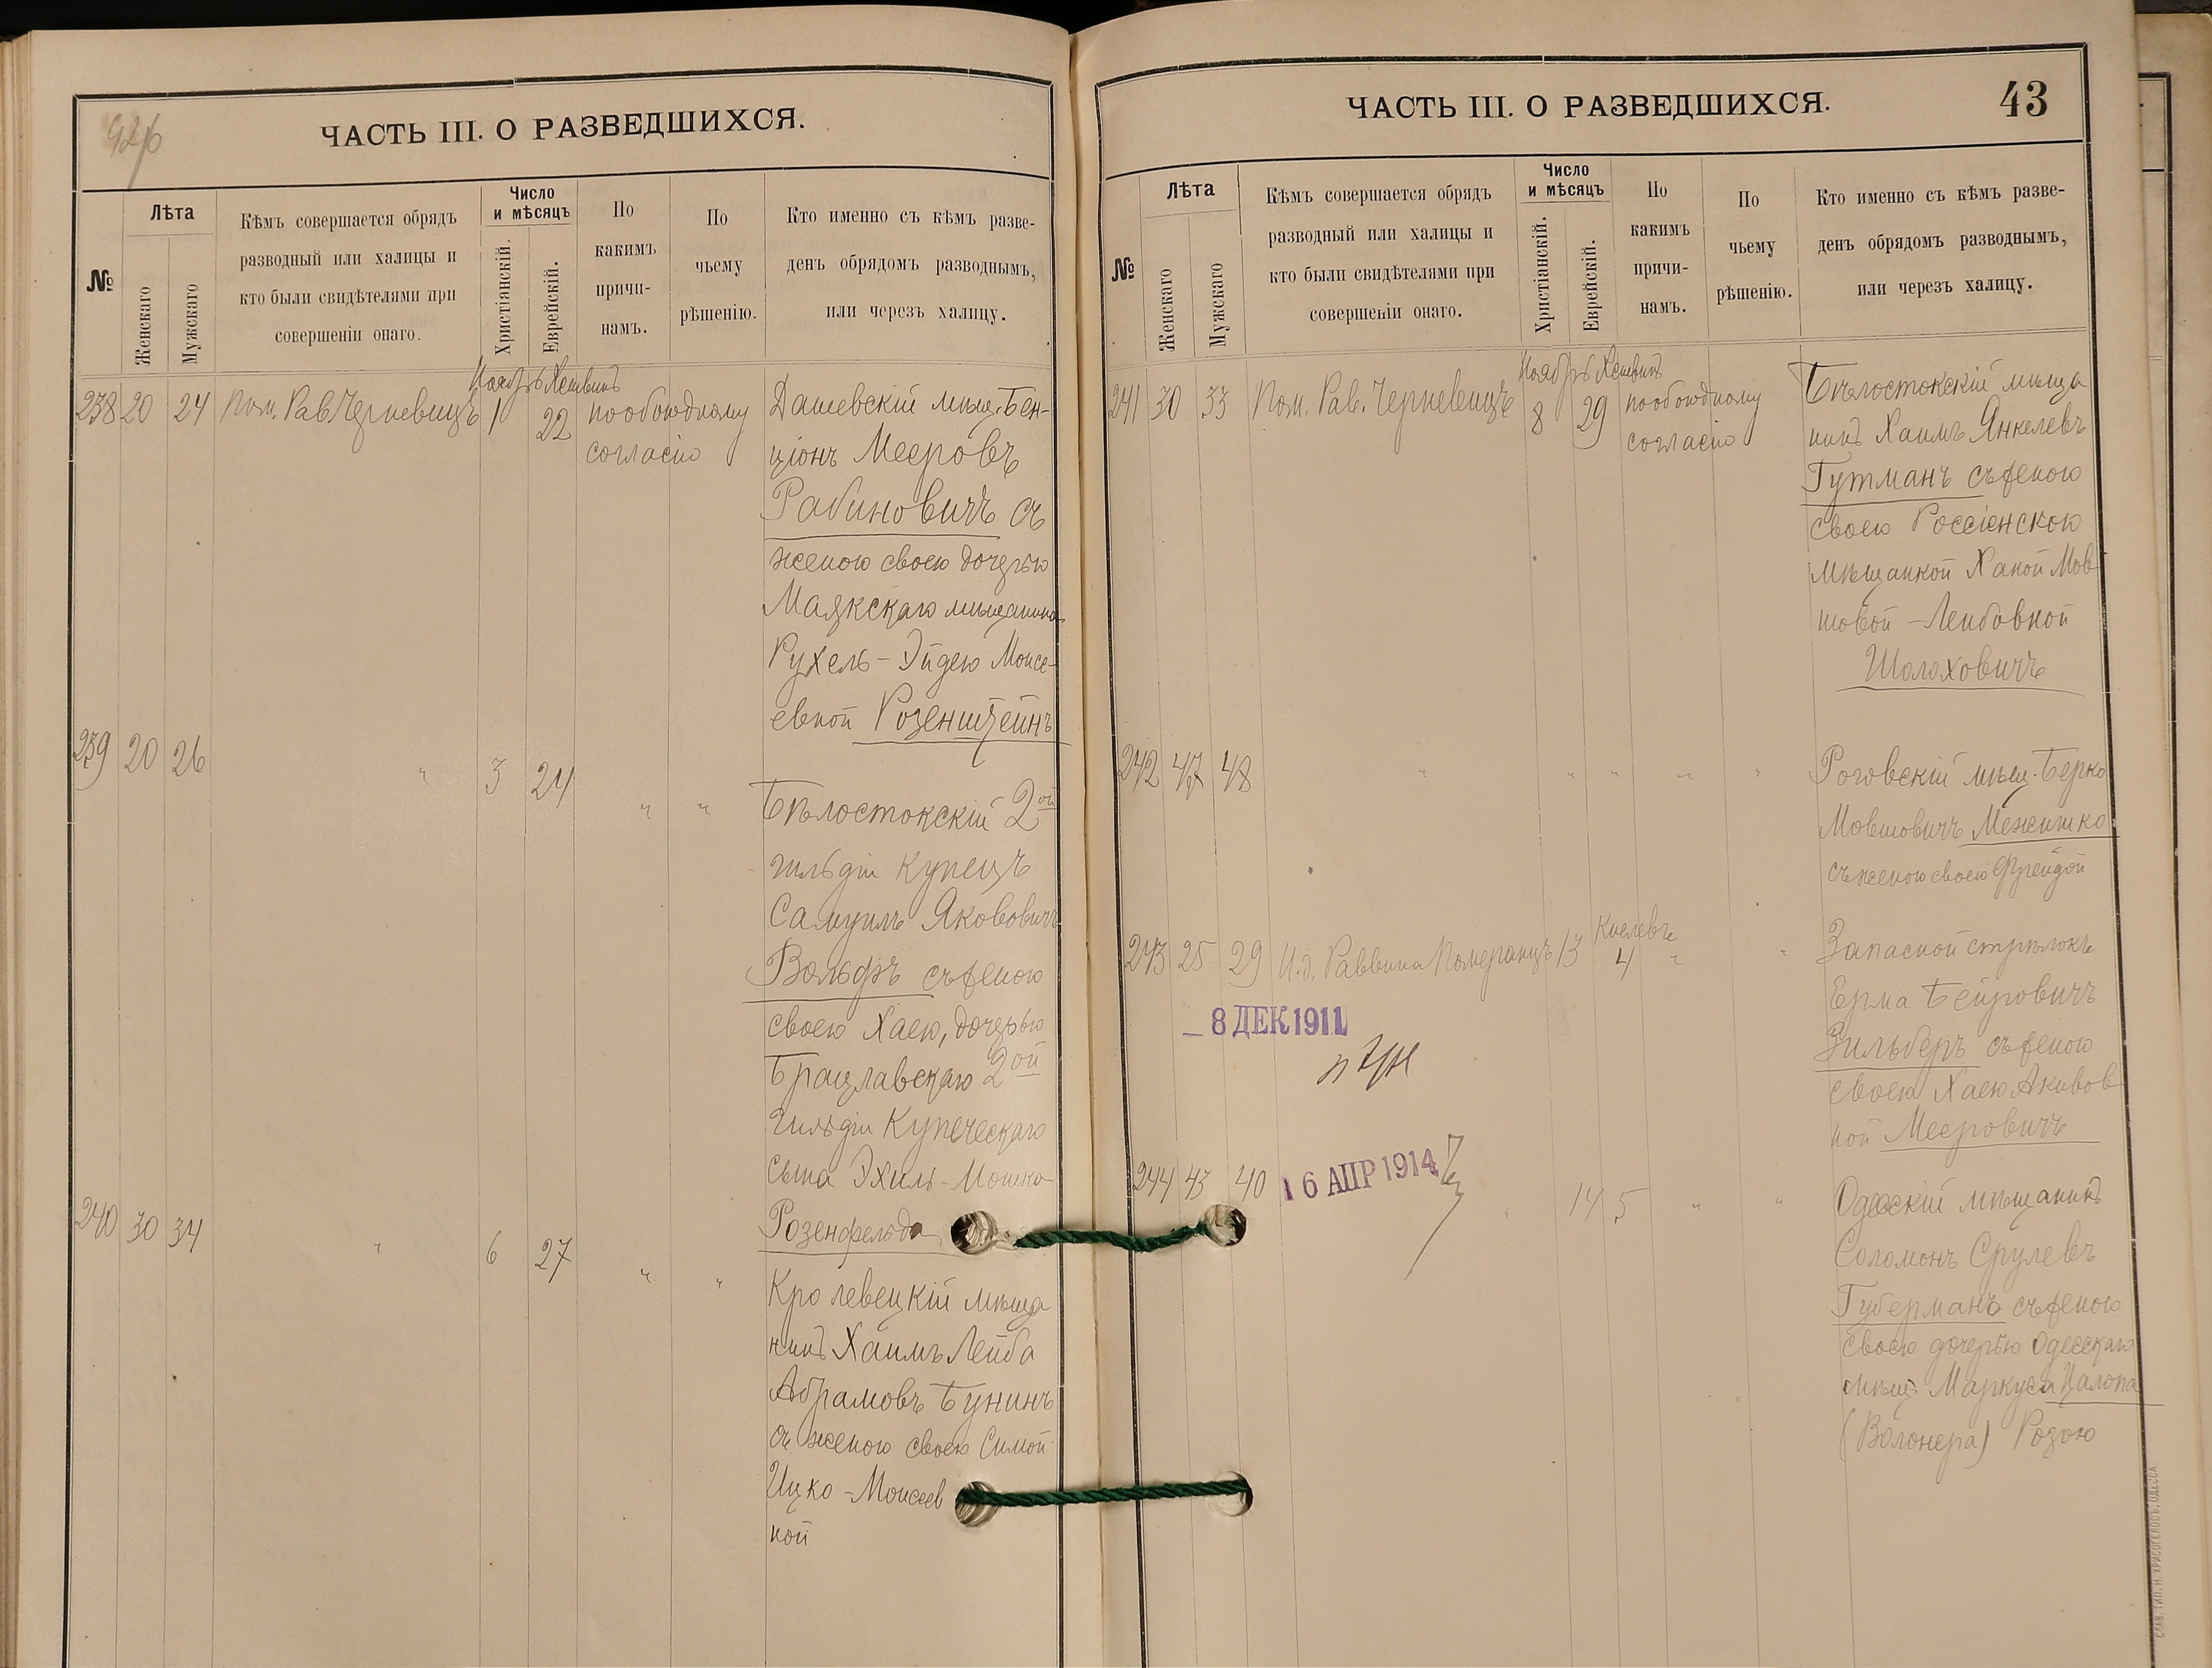 ЧАСТЬ III. О РАЗВЕДШИХСЯ.
№
Лѣта
Женскаго
Мужскаго
Кѣмъ совершается обрядъ
разводный или халицы и
кто были свидѣтелями при
совершеніи онаго.
Число
и мѣсяцъ
Христіанскій.
Еврейскій.
По
какимъ
причи-
намъ.
По
чьему
рѣшенію.
Кто именно съ кѣмъ разве-
денъ обрядомъ разводнымъ,
или черезъ халицу.
Ноябрь Хешвинъ
238 20 24 Пом. Рав. Черневицъ 1 22 по обоюдному
согласію
Дашевскій мѣщ. Бен-
ціонъ Мееровъ
Рабиновичъ съ
женою своею дочерью
Маякскаго мѣщанина
Рухель-Эйдею Моисе-
евной Розенштейнъ
239 20 26 " 3 24 " "
Бѣлостокскій 2ой
гильдіи Купецъ
Самуилъ Яковович
Вольфъ съ женою
своею Хаею, дочерью
Брацлавскаго 2ой
гильдіи Купеческаго
сына Эхиль-Мошко
Розенфельда
240 30 34 " 6 27 " "
Кролевецкій мѣща
нинъ Хаимъ Лейба
Абрамовъ Бунинъ
съ женою своею Симой
Ицко-Моисеев
ной
ЧАСТЬ III. О РАЗВЕДШИХСЯ.
43
№
Лѣта
Женскаго
Мужскаго
Кѣмъ совершается обрядъ
разводный или халицы и
кто были свидѣтелями при
совершеніи онаго.
Число
и мѣсяцъ
Христіанскій.
Еврейскій.
По
какимъ
причи-
намъ.
По
чьему
рѣшенію.
Кто именно съ кѣмъ разве-
денъ обрядомъ разводнымъ,
или черезъ халицу.
Ноябрь Хешвинъ
241 30 33 Пом. Рав. Черневицъ 8 29 по обоюдному
согласію
Бѣлостокскій мѣща
нинъ Хаимъ Янкелевъ
Гутманъ съ женою
своею Россіенскою
мѣщанкой Ханой Мов
шовой-Лейбовной
Шолоховичъ
242 47 48 " " " " "
Роговскій мѣщ. Берко
Мовшовичъ Межишко
съ женою своею Фрейдой
Кислевъ
243 25 29 И.д. Раввина Померанцъ 13 4 " "
Запасной стрѣлокъ
Ерма Бейровичъ
Зильберъ съ женою
своею Хаею Акивов
ной Мееровичъ
8 ДЕК 1911
244 43 40 14 5 " "
16 АПР 1914
Одесскій мѣщанинъ
Соломонъ Срулевъ
Губерманъ съ женою
своею дочерью Одесскаго
мѣщ. Маркуса Цалопа
(Волонера) Розою
СЛАВ. ТИП. Н. ХРИСОГЕЛОСЪ, ОДЕССА.